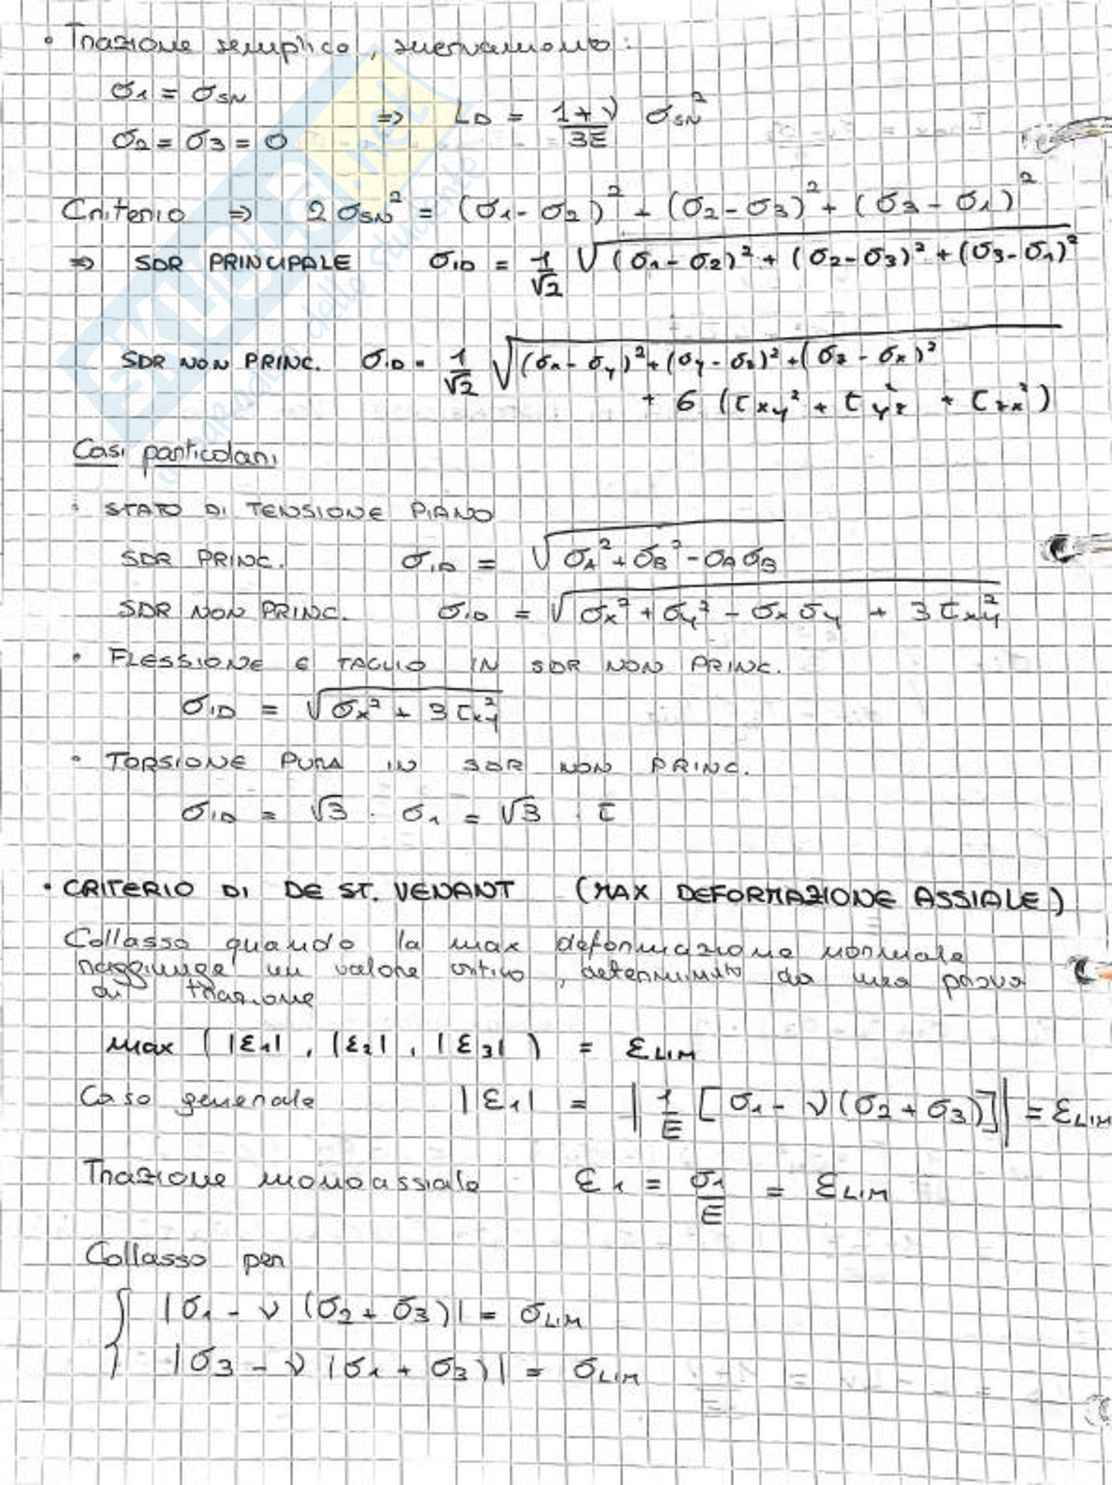 • Trazione semplice, snervamento:
σ1 = σSN
σ2 = σ3 = 0 ⇒ LD = (1+ν)/(3E) σSN²
Criterio ⇒ 2σSN² = (σ1-σ2)² + (σ2-σ3)² + (σ3-σ1)²
⇒ SDR PRINCIPALE σID = 1/√2 √((σ1-σ2)² + (σ2-σ3)² + (σ3-σ1)²)
SDR NON PRINC. σID = 1/√2 √((σx-σy)² + (σy-σz)² + (σz-σx)²
+ 6 (τxy² + τyz² + τzx²)
Casi particolari
• STATO DI TENSIONE PIANO
SDR PRINC. σID = √(σA² + σB² - σAσB)
SDR NON PRINC. σID = √(σx² + σy² - σxσy + 3τxy²)
• FLESSIONE E TAGLIO IN SDR NON PRINC.
σID = √(σx² + 3τxy²)
• TORSIONE PURA IN SDR NON PRINC.
σID = √3 · σ1 = √3 · τ
• CRITERIO DI DE ST. VENANT (MAX DEFORMAZIONE ASSIALE)
Collasso quando la max deformazione normale
raggiunge un valore critico, determinato da una prova
di trazione
max (|ε1|, |ε2|, |ε3|) = εLIM
Caso generale |ε1| = |1/E [σ1 - ν(σ2+σ3)]| = εLIM
Trazione monoassiale ε1 = σ1/E = εLIM
Collasso per
{ |σ1 - ν (σ2 + σ3)| = σLIM
|σ3 - ν |σ1 + σ3)| = σLIM
SKUOLA.net